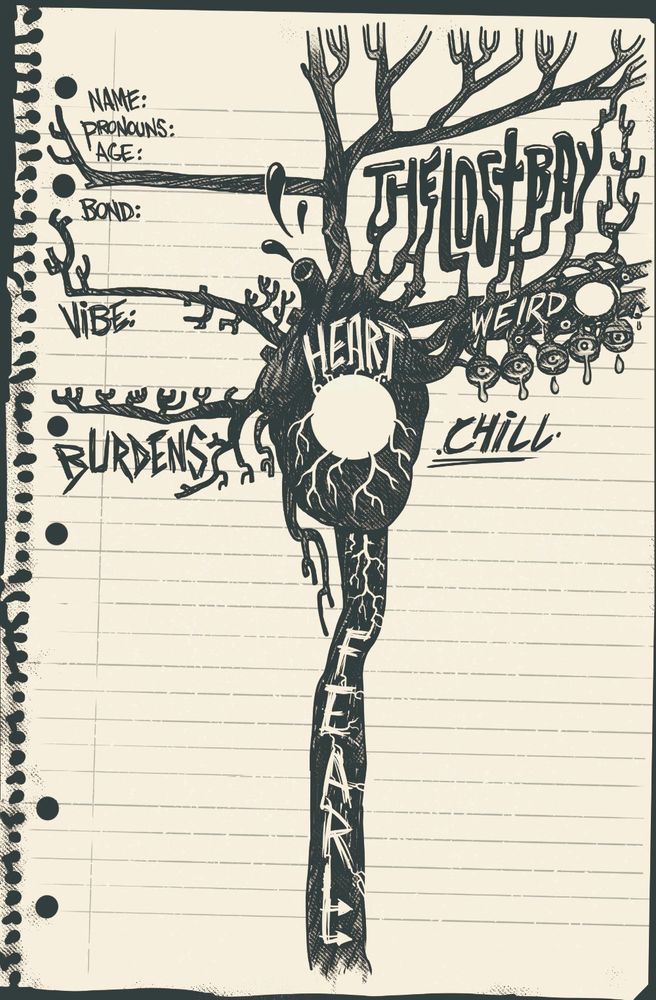 NAME:
PRONOUNS:
AGE:
BOND:
THE LOST BAY
VIBE:
WEIRD
HEART
BURDENS:
.CHILL.
FEAR